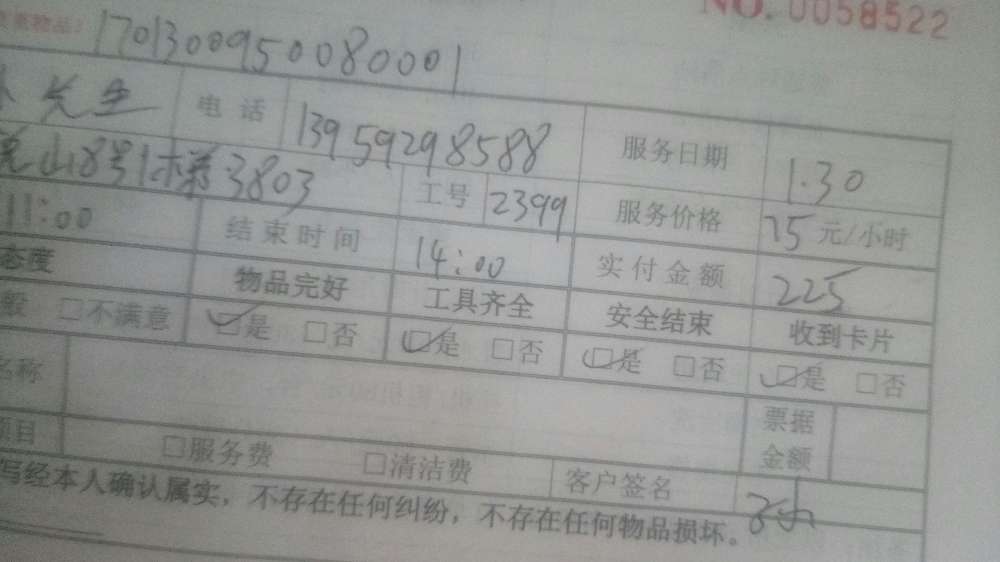 NO.0058522
物品！ 1701300950080001
先生 电话 13959298588 服务日期 1.30
山8号1梯3803 工号 2399 服务价格 75元/小时
11:00 结束时间 14:00 实付金额 225
态度 物品完好 工具齐全 安全结束 收到卡片
般 □不满意 ☑是 □否 ☑是 □否 ☑是 □否 ☑是 □否
名称 票据金额
项目 □服务费 □清洁费 客户签名
写经本人确认属实，不存在任何纠纷，不存在任何物品损坏。